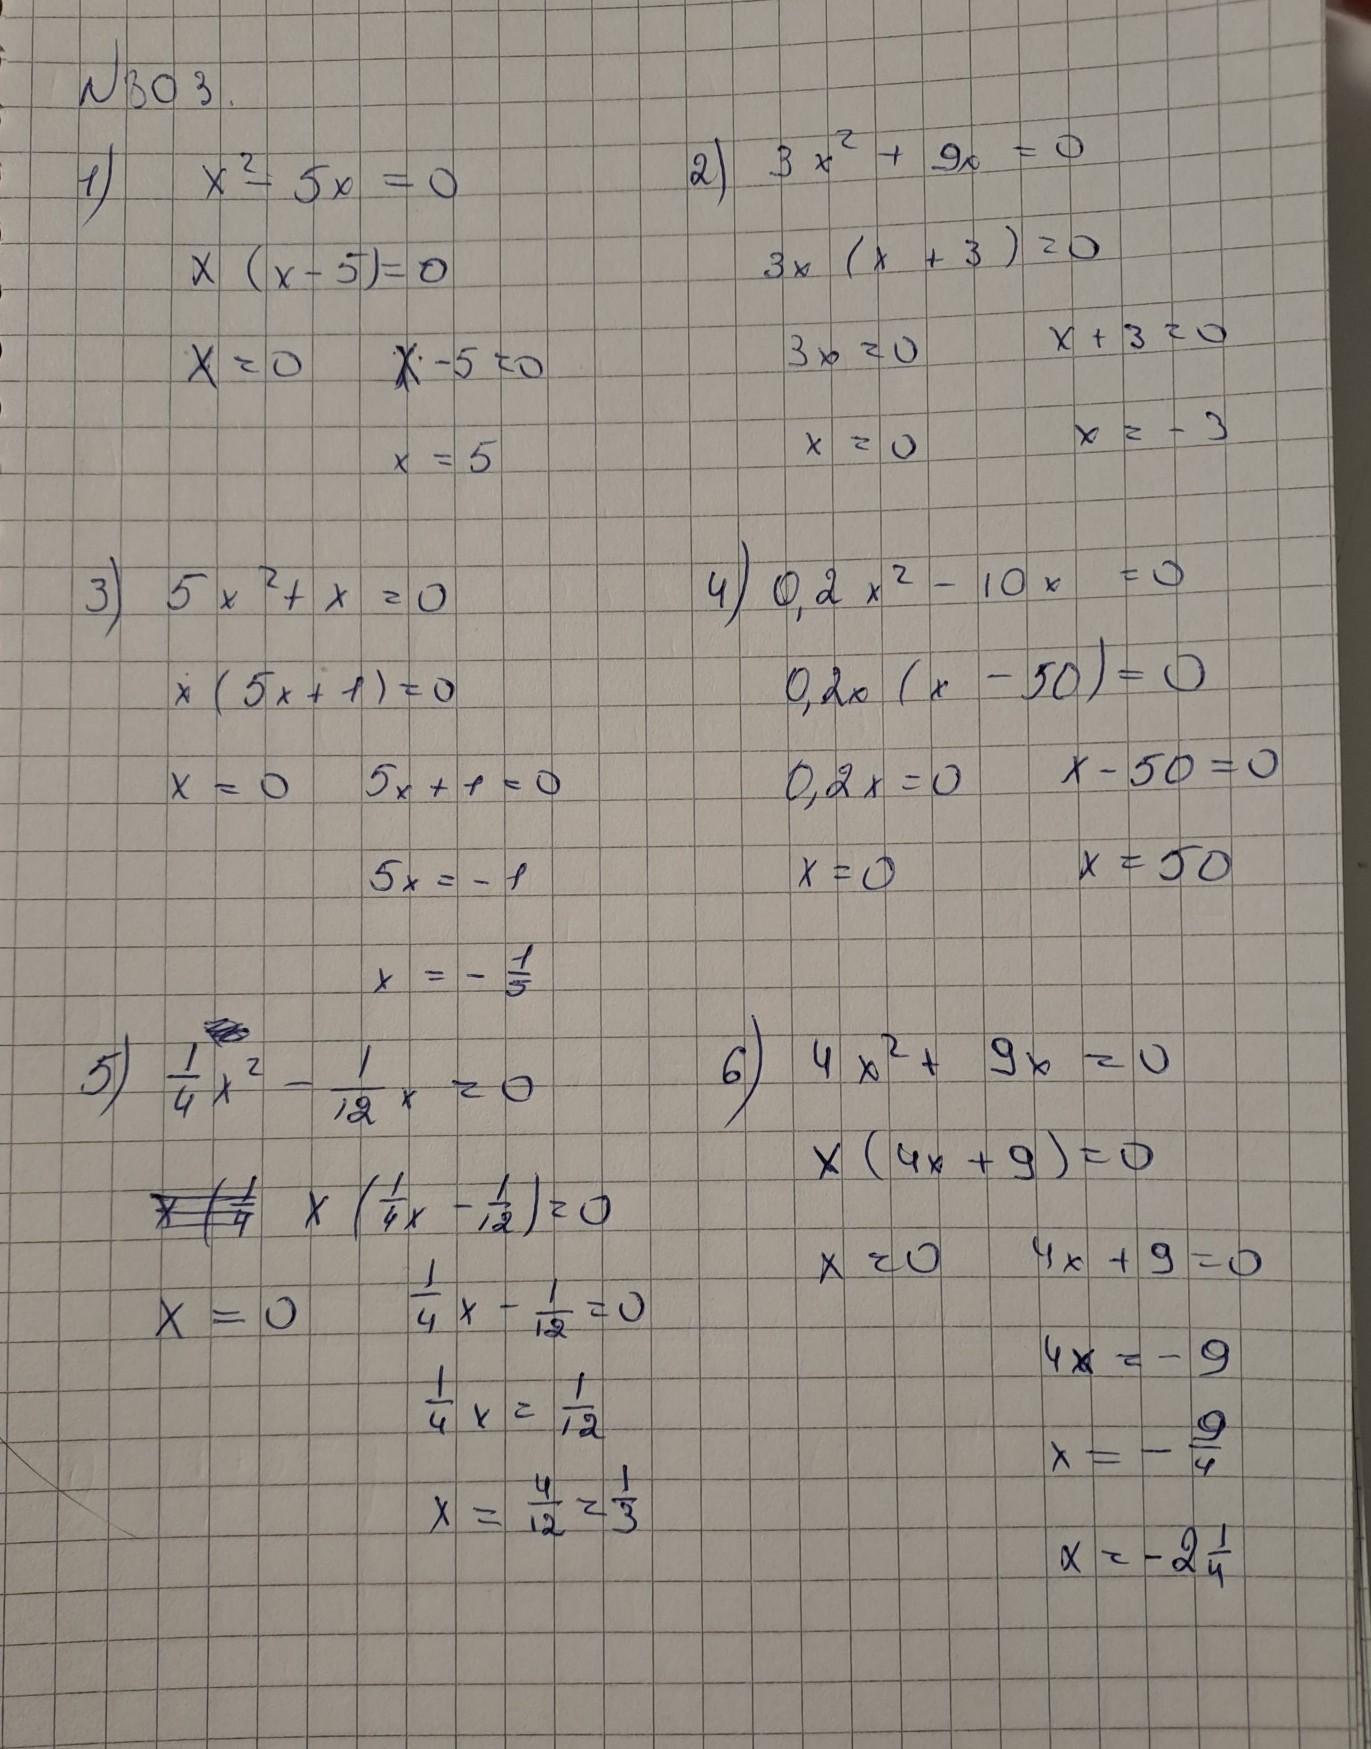 N303.
1) x² - 5x = 0
x (x - 5) = 0
x = 0 x - 5 = 0
x = 5
2) 3x² + 9x = 0
3x (x + 3) = 0
3x = 0 x + 3 = 0
x = 0 x = - 3
3) 5x² + x = 0
x (5x + 1) = 0
x = 0 5x + 1 = 0
5x = - 1
x = - 1/5
4) 0,2x² - 10x = 0
0,2x (x - 50) = 0
0,2x = 0 x - 50 = 0
x = 0 x = 50
5) 1/4 x² - 1/12 x = 0
x (1/4 x - 1/12) = 0
x = 0 1/4 x - 1/12 = 0
1/4 x = 1/12
x = 4/12 = 1/3
6) 4x² + 9x = 0
x (4x + 9) = 0
x = 0 4x + 9 = 0
4x = - 9
x = - 9/4
x = - 2 1/4